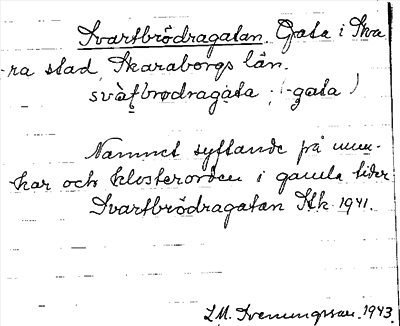 Svartbrödragatan. Gata i Ska-
ra stad, Skaraborgs län.
svàt̠brødragata ; (-gata)
Namnet syftande på mun-
kar och klosterorden i gamla tider.
Svartbrödragatan Stk 1941.
L.M. Svenungsson. 1943.